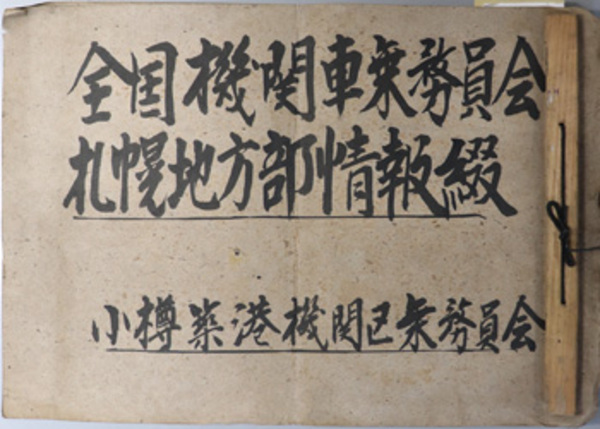 全国機関車乗務員会
札幌地方部情報綴
小樽築港機関区乗務員会